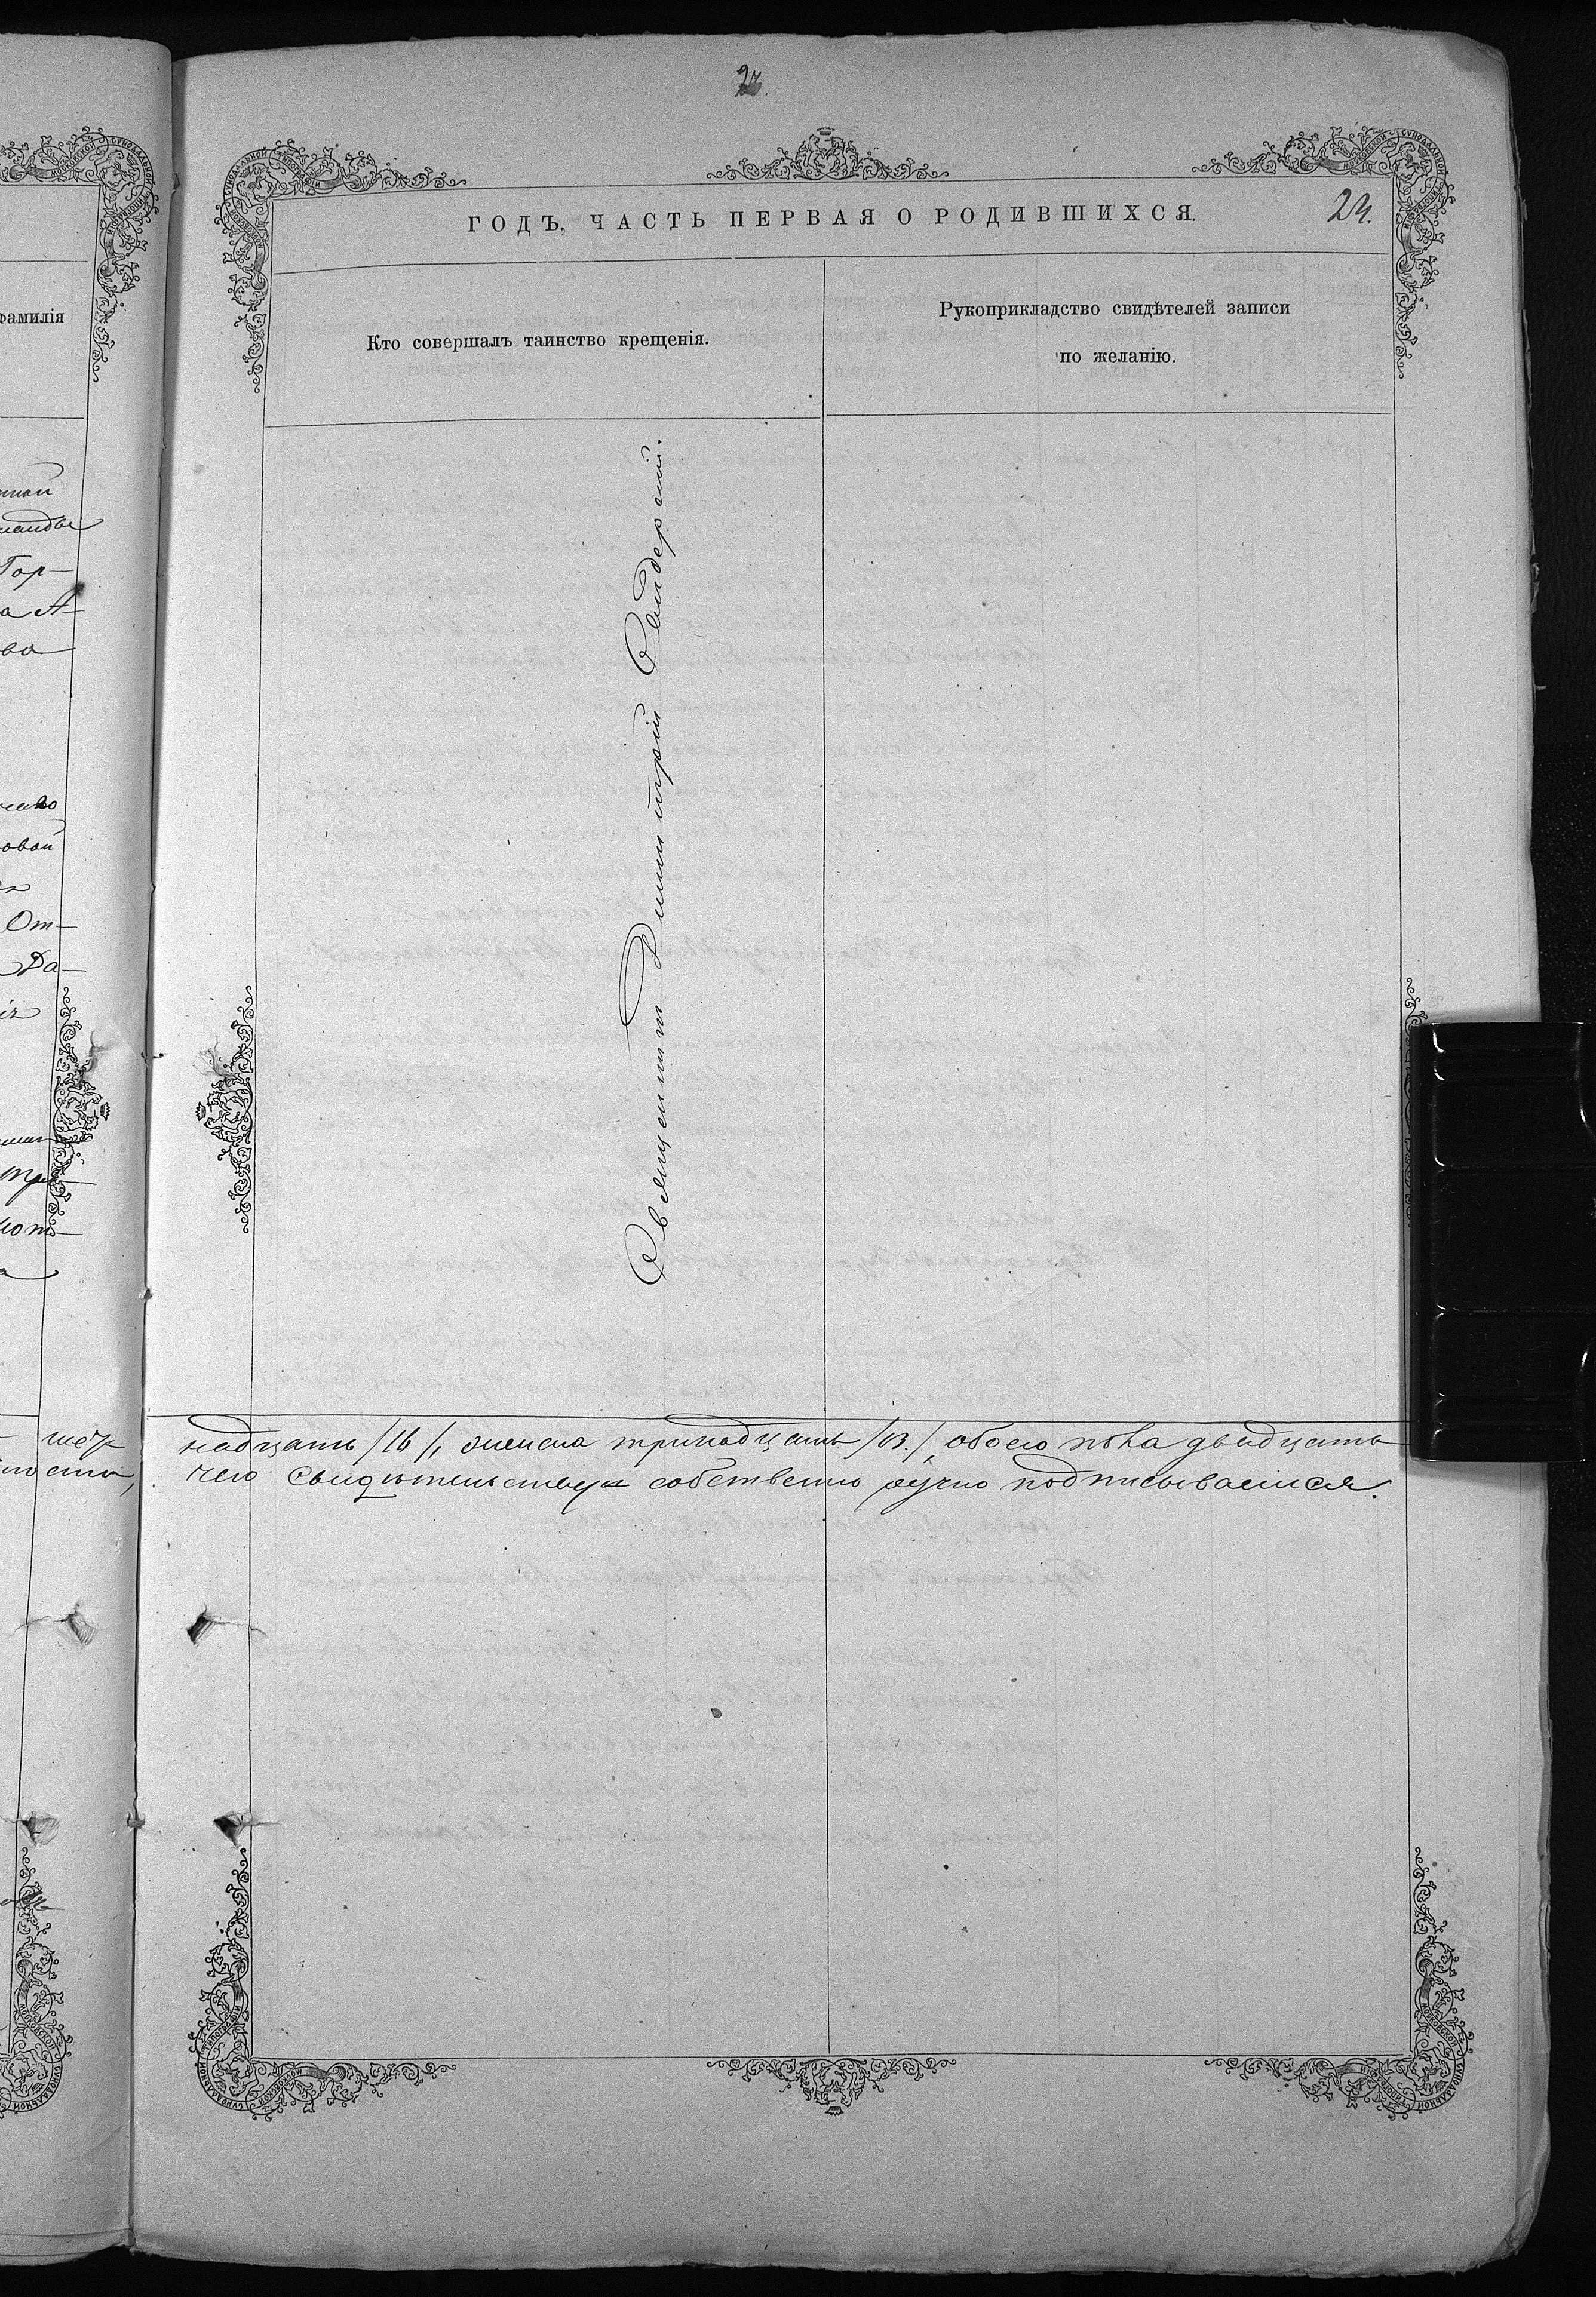 23.
ГОДЪ, ЧАСТЬ ПЕРВАЯ О РОДИВШИХСЯ.
фамилія
Кто совершалъ таинство крещенія.
Рукоприкладство свидѣтелей записи
по желанію.
Гор-
а А-
ва
овой
От-
Да-
Священникъ Димитрій Сандерскій.
надцать /16/, женска тринадцать /13./, обоего пола двадцать
чего свидѣтельствуя собственно ручно подписываемся.